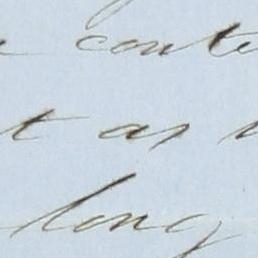 conte
t as
long